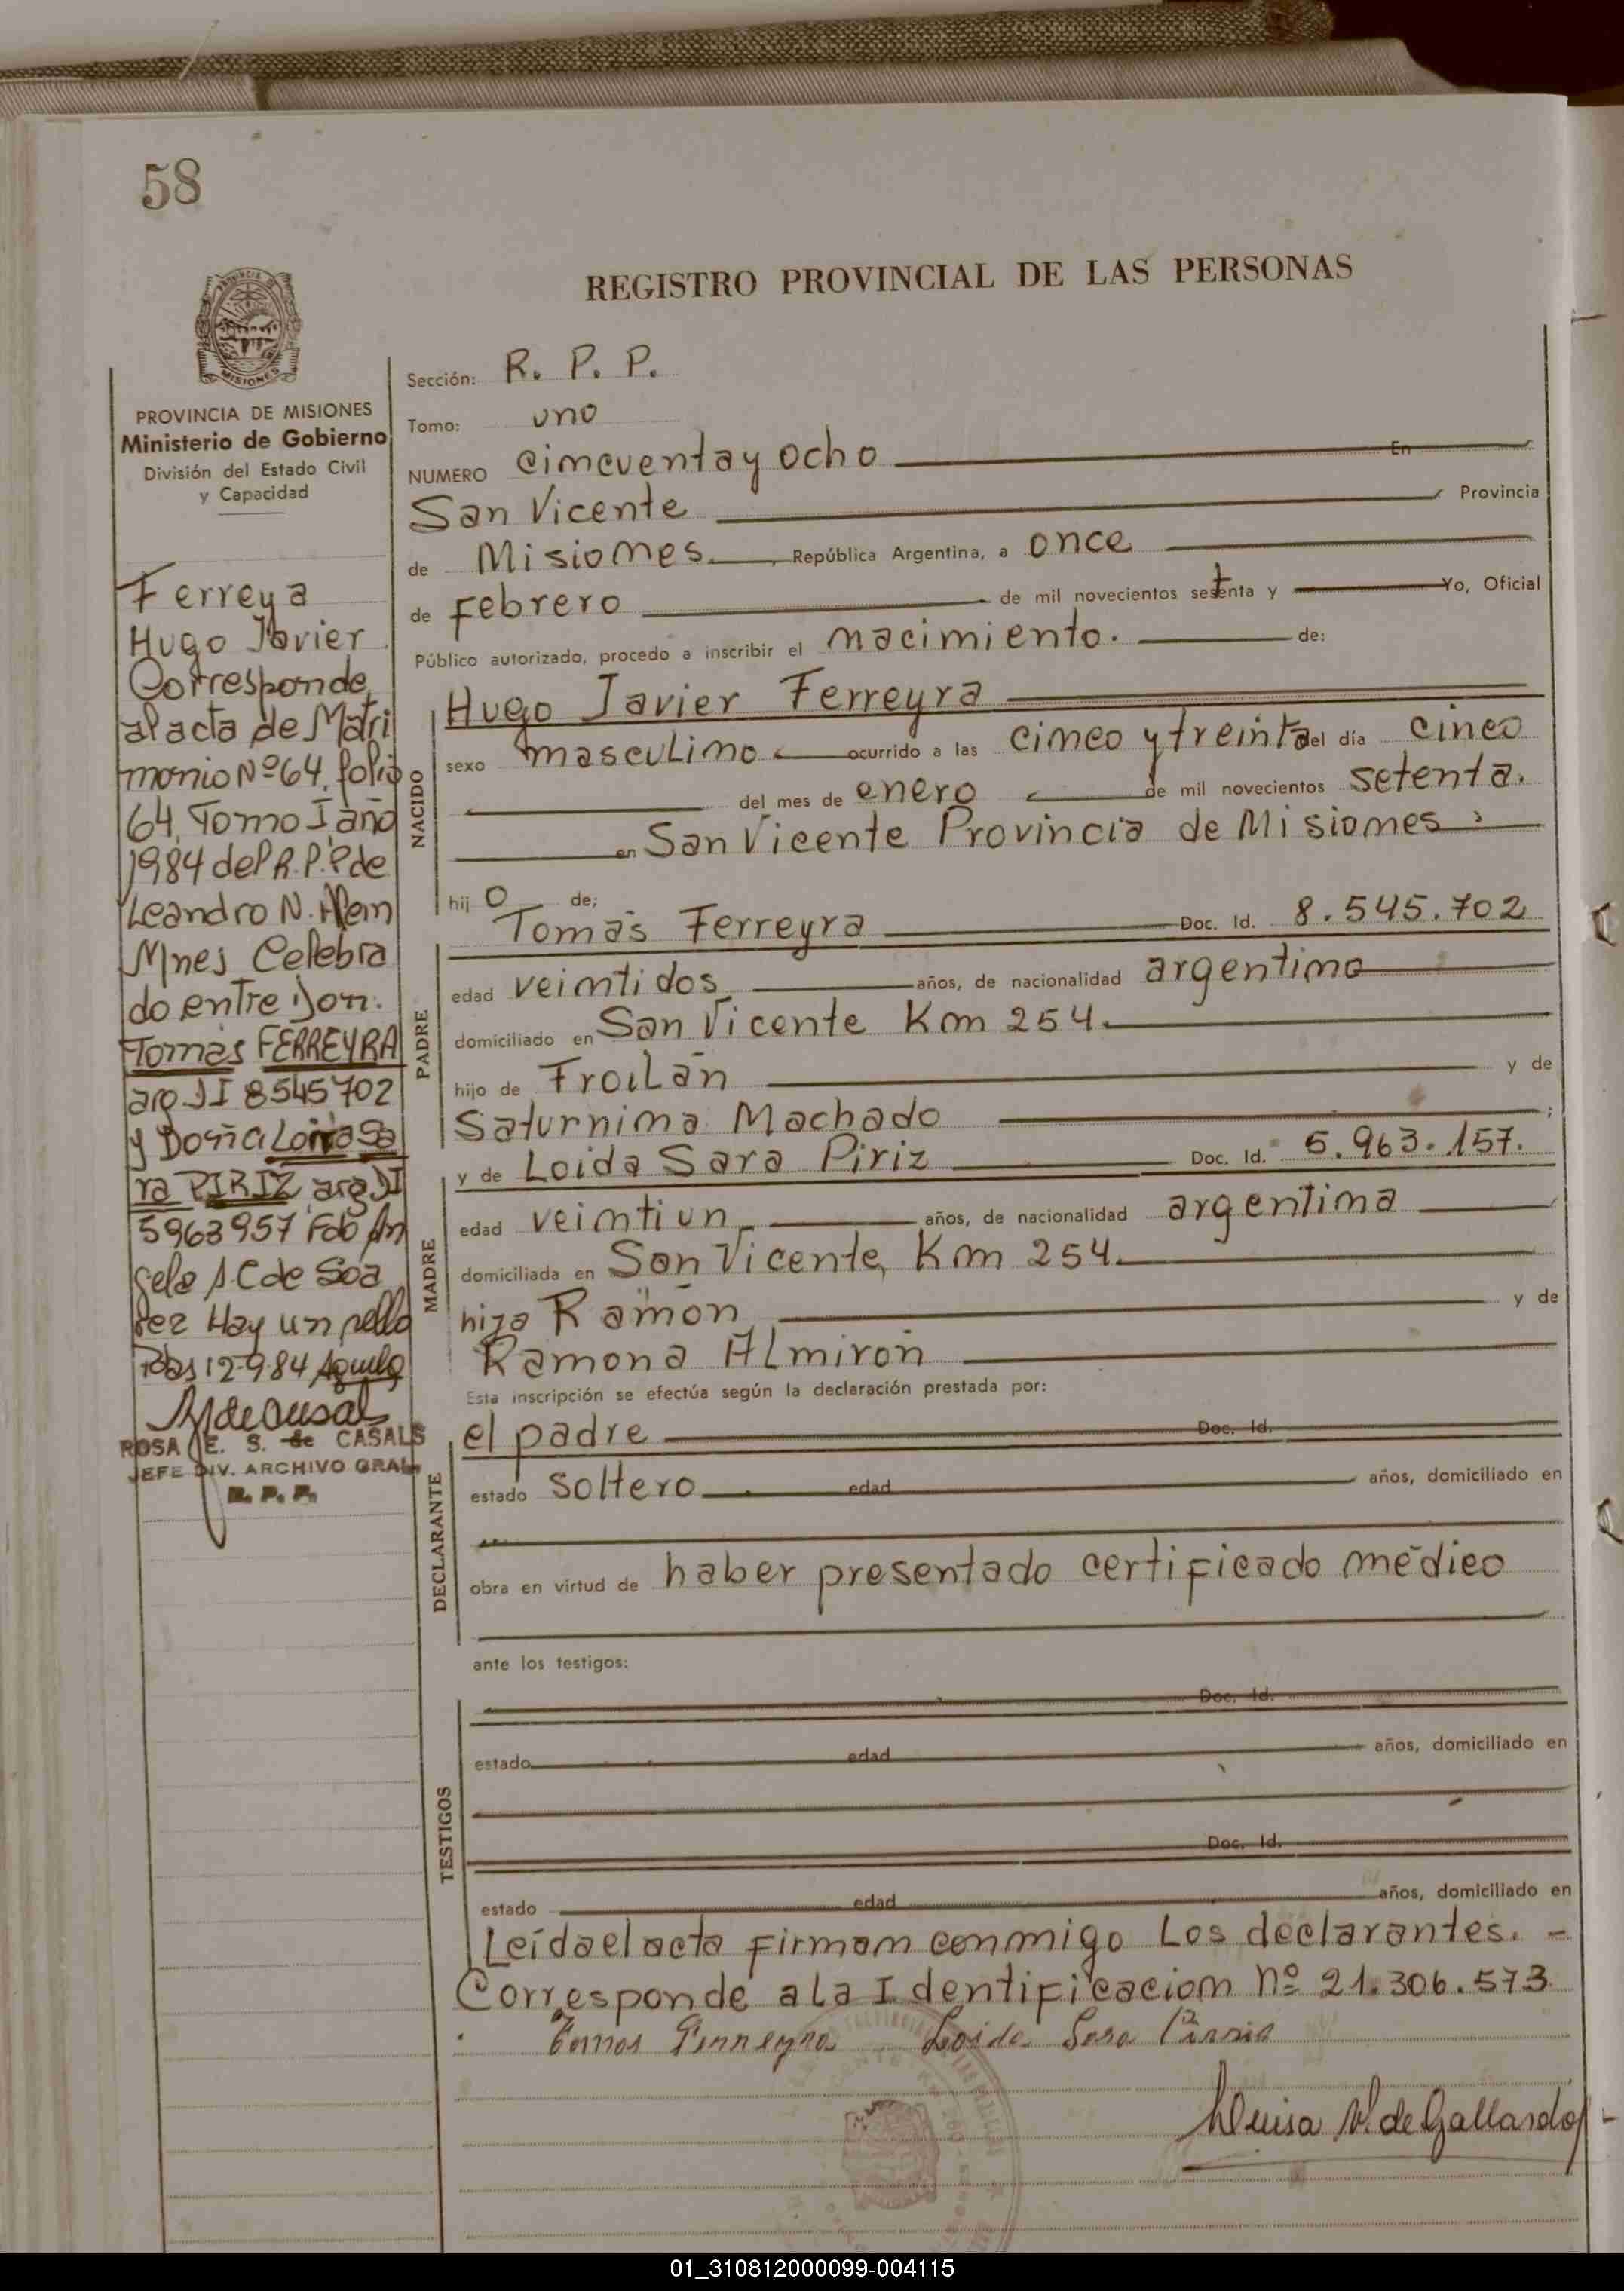 58
REGISTRO PROVINCIAL DE LAS PERSONAS
PROVINCIA DE
MISIONES
PROVINCIA DE MISIONES
Ministerio de Gobierno
División del Estado Civil
y Capacidad
Ferreya
Hugo Javier
Corresponde
al acta de Matri
monio Nº 64, folio
64, Tomo I año
1984 del R.P.P de
Leandro N. Alem
Mnes Celebra
do entre Don.
Tomas FERREYRA
arg. DI 8545702
y Doña Loida Sa
ra PIRIZ arg DI
5963957 Fdo An
gela S.C de Soa
rez Hay un sello
Pdas 12-9-84
ROSA E. S. de CASALS
JEFE DIV. ARCHIVO GRAL.
R. P. P.
Sección: R. P. P.
Tomo: uno
NUMERO cincuenta y ocho En
San Vicente Provincia
de Misiones. República Argentina, a once
de febrero de mil novecientos setenta y Yo, Oficial
Público autorizado, procedo a inscribir el nacimiento. de:
NACIDO
Hugo Javier Ferreyra
sexo masculino ocurrido a las cinco y treinta del día cinco
del mes de enero de mil novecientos setenta.
en San Vicente Provincia de Misiones
hij o de;
PADRE
Tomás Ferreyra Doc. Id. 8.545.702
edad veintidos años, de nacionalidad argentino
domiciliado en San Vicente Km 254.
hijo de Froilán y de
Saturnina Machado ;
MADRE
y de Loida Sara Piriz Doc. Id. 5.963.157.
edad veintiun años, de nacionalidad argentina
domiciliada en San Vicente, Km 254.
hija Ramón y de
Ramona Almirón
Esta inscripción se efectúa según la declaración prestada por:
DECLARANTE
el padre Doc. Id.
estado soltero edad años, domiciliado en
obra en virtud de haber presentado certificado médico
ante los testigos:
TESTIGOS
Doc. Id.
estado edad años, domiciliado en
Doc. Id.
estado edad años, domiciliado en
Leída el acta firman conmigo Los declarantes. -
Corresponde a la Identificacion nº 21.306.573
Tomas Ferreyra Loida Sara Piriz
Luisa V. de Gallardo
01_310812000099-004115